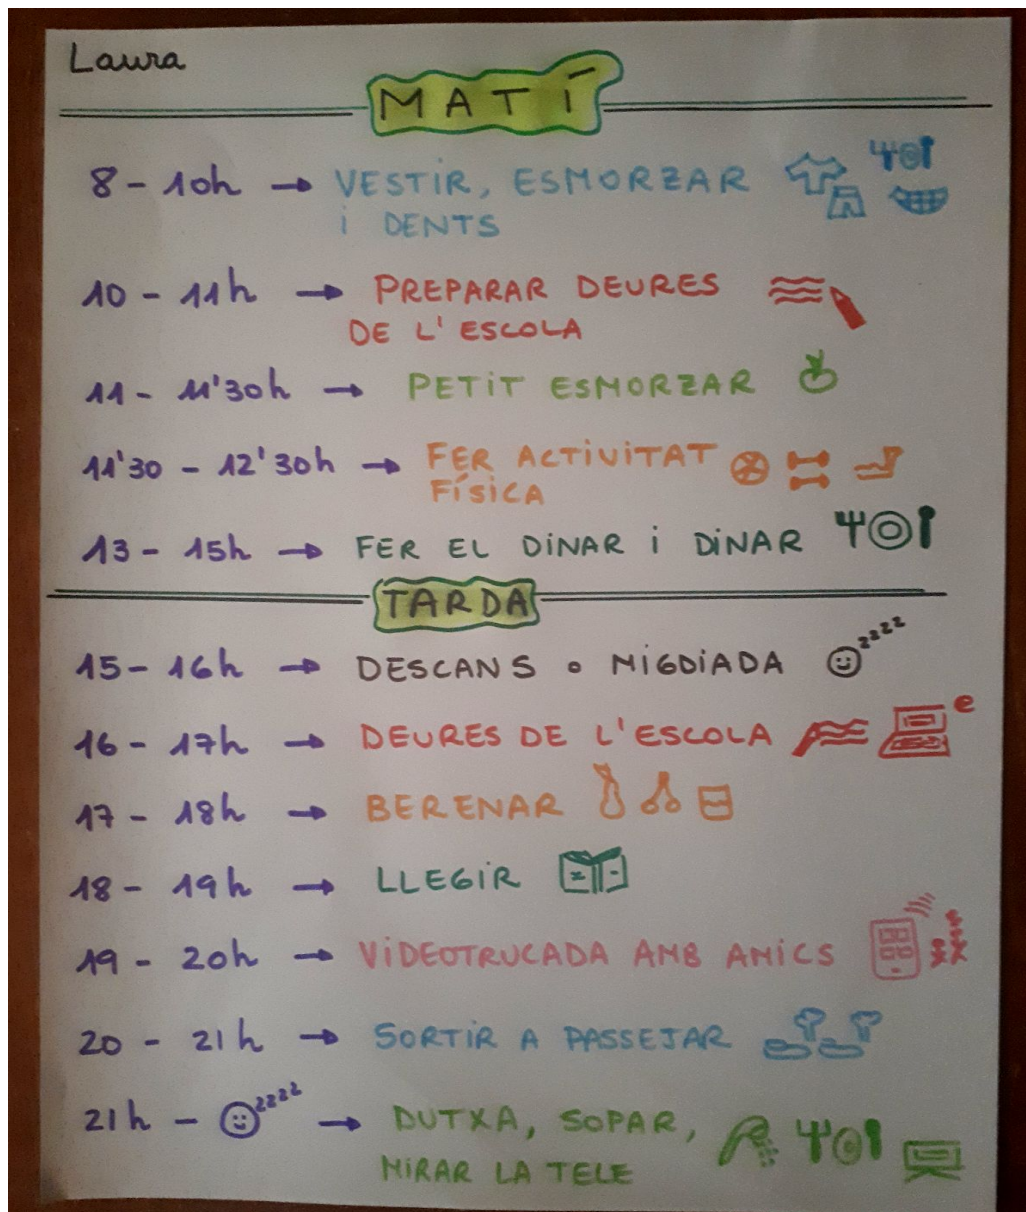 Laura
MATÍ
8 - 10h → VESTIR, ESMORZAR
i DENTS
10 - 11h → PREPARAR DEURES
DE L'ESCOLA
11 - 11'30h → PETIT ESMORZAR
11'30 - 12'30h → FER ACTIVITAT
FÍSICA
13 - 15h → FER EL DINAR i DINAR
TARDA
15 - 16h → DESCANS o MIGDIADA
zzzz
16 - 17h → DEURES DE L'ESCOLA
e
17 - 18h → BERENAR
18 - 19h → LLEGIR
19 - 20h → VIDEOTRUCADA AMB AMICS
20 - 21h → SORTIR A PASSEJAR
21h - zzzz → DUTXA, SOPAR,
MIRAR LA TELE